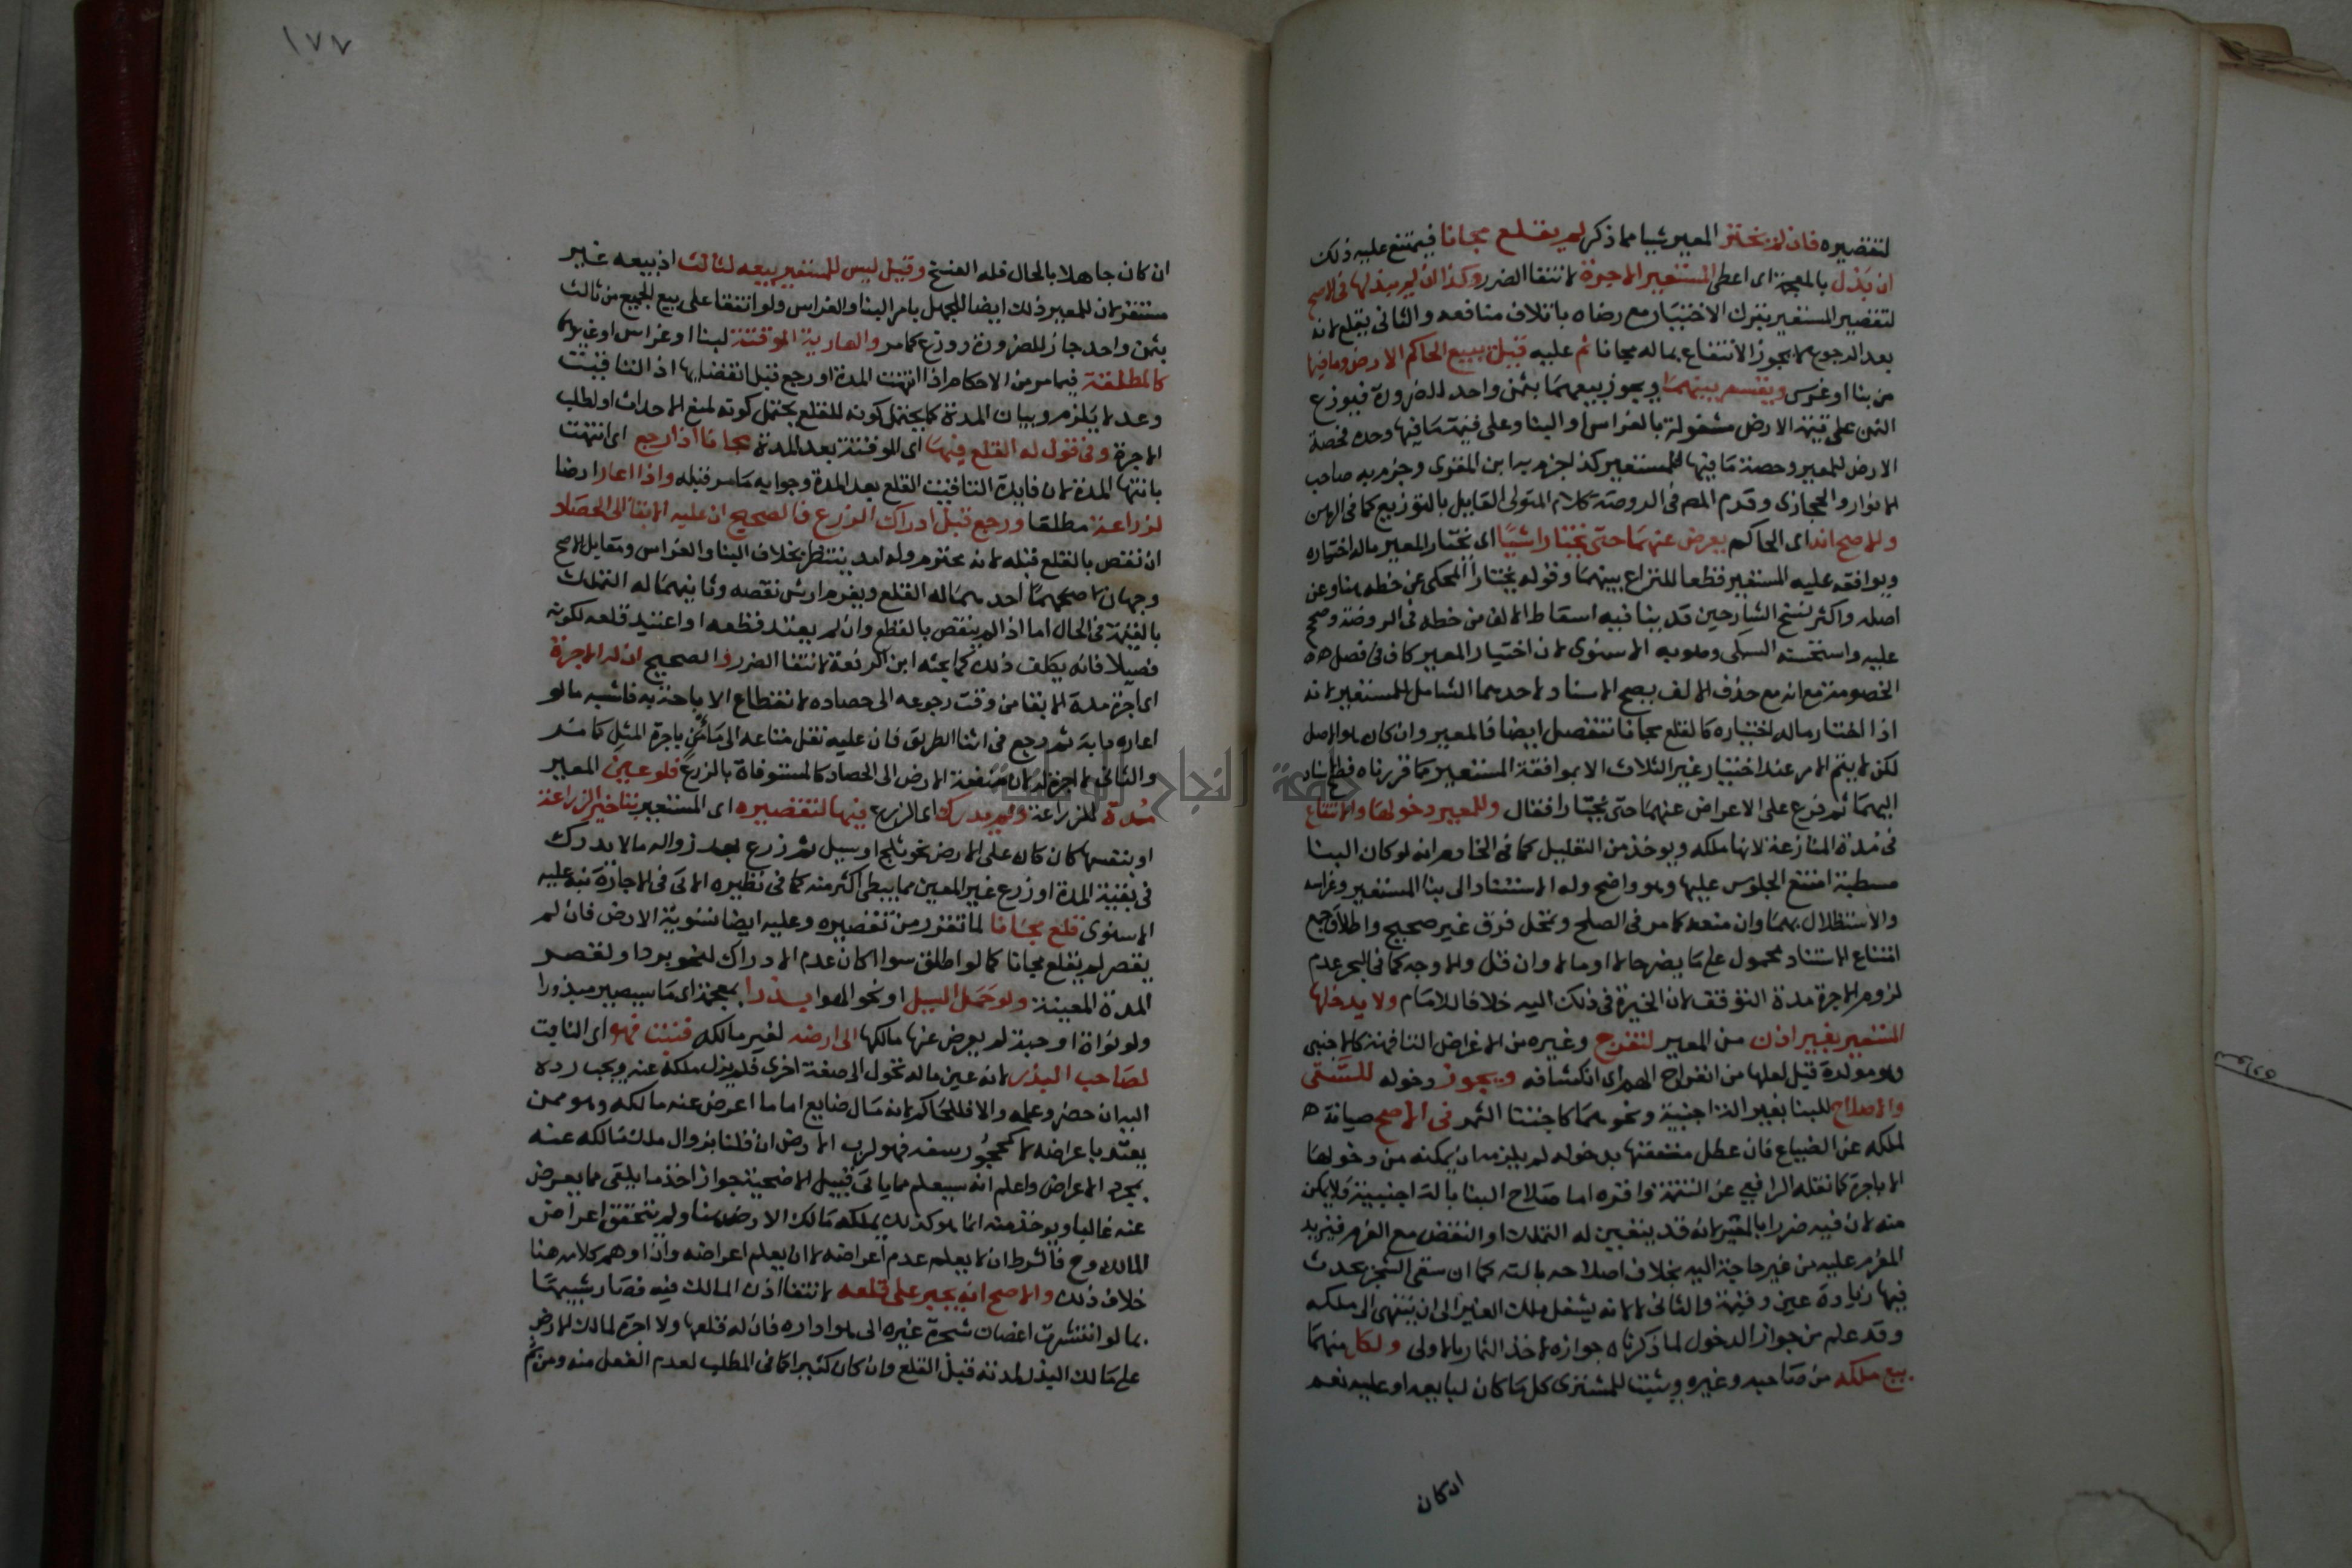 لتقصيره فان لم يختر المعير شيا مما ذكر لم يقلع مجانا فيمتنع عليه ذلك
ان بذل بالمعجمة اى اعطى المستعير الاجرة لانتفا الضرر وكذا ان لم يبذلها فى الاصح
لتقصير المستعير بترك الاختيار مع رضاه باتلاف منافعه والثانى يقلع لانه
بعد الرجوع لا يجوز الانتفاع بماله مجانا ثم عليه قيل يبيع الحاكم الارض وما فيها
من بنا او غرس ويقسم بينهما ويجوز بيعهما بثمن واحد للضرورة فيوزع
الثمن على قيمة الارض مشغولة بالغراس او البنا وعلى قيمة ما فيها وحده فحصة
الارض للمعير وحصة ما فيها للمستعير كذا جزم به ابن المقرى وجزم به صاحب
الانوار والحجازى وقدم المص فى الروضة كلام المتولى القايل بالتوزيع كما فى الرهن
والاصح انه اى الحاكم يعرض عنهما حتى يختارا شيا اى يختار المعير ماله اختياره
ويوافقه عليه المستعير قطعا للنزاع بينهما وقوله يختارا المحكى عن خطه هنا وعن
اصله واكثر نسخ الشارحين قد ينافيه اسقاط الالف من خطه فى الروضة وصحح
عليه واستحسنه السبكى وصوبه الاسنوى لان اختيار المعير كاف فى فصل
الخصومة مع انه مع حذف الالف يصح الاسناد لاحدهما الشامل للمستعير لانه
اذا اختار ماله اختياره كالقلع مجانا تنفصل ايضا فالمعير وان كان هو الاصل
لكن لا يتم الامر عند اختيار غير الثلاث الا بموافقة المستعير كما قررناه فصح اسناد
اليهما ثم فرع على الاعراض عنهما حتى يختارا فقال وللمعير دخولها والانتفاع
فى مدة المنازعة لانها ملكه ويوخذ من التعليل كما فى الخادم انه لو كان البنا
مسطبة امتنع الجلوس عليها وهو واضح وله الاستناد الى بنا المستعير وغراسه
والاستظلال بهما وان منعه كما مر فى الصلح وتمحل فرق غير صحيح واطلاق جمع
امتناع الاستناد محمول على ما يضر حالا او مالا وان قل والاوجه كما فى البحر عدم
لزوم الاجرة مدة التوقف لان الخيرة فى ذلك اليه خلافا للامام ولا يدخلها
المستعير بغير اذن من المعير لتفرج وغيره من الاغراض التافهة كالاجنبى
وهو مولدة قيل لعلها من انفراج الهم اى انكشافه ويجوز دخوله للسقى
والاصلاح للبنا بغير الة اجنبية ونحوهما كاجتنا الثمر فى الاصح صيانة ه
لملكه عن الضياع فان عطل منفعتها بدخوله لم يلزمه ان يمكنه من دخولها
الا باجرة كما نقله الرافعى عن التتمة واقره اما صلاح البنا بالة اجنبية فلا يمكن
منه لان فيه ضررا بالمعير لانه قد يتعين له التملك او النقض مع الغرم فيزيد
الغرم عليه من غير حاجة اليه بخلاف اصلاحه بالته كما ان سقى الشجر يحدث
فيها زيادة عين وقيمة والثانى لا لانه يشغل ملك الغير الى ان ينتهى الى ملكه
وقد علم من جواز الدخول لما ذكرناه جوازه لاخذ الثمار بالاولى ولكل منهما
بيع ملكه من صاحبه وغيره ويثبت للمشترى كل ما كان لبايعه او عليه نعم
ان كان
١٧٧
ان كان جاهلا بالحال فله الفسخ وقيل ليس للمستعير بيعه لثالث اذ بيعه غير
مستقر لان للمعير ذلك ايضا للجهل بامر البنا والغراس ولو اتفقا على بيع الجميع من ثالث
بثمن واحد جاز للضرورة ووزع كما مر والعارية الموقتة لبنا او غراس او غيرهما
كالمطلقة فيما مر من الاحكام اذا انتهت المدة او رجع قبل انقضايها اذ التاقيت
وعد لا يلزم وبيان المدة كما يحتمل كونه للقلع يحتمل كونه لمنع الاحداث او لطلب
الاجرة وفى قول له القلع فيها اى الموقتة بعد المدة مجانا اذا رجع اى انتهت
بانتها المدة لان فايدة التاقيت القلع بعد المدة وجوابه ما مر قبله واذا اعار ارضا
لزراعة مطلقا ورجع قبل ادراك الزرع فالصحيح ان عليه الابقا الى الحصاد
ان نقص بالقلع قبله لانه محترم وله امد ينتظر بخلاف البنا والغراس ومقابل الاصح
وجهان اصحهما احدهما له القلع ويغرم ارش نقصه وثانيهما له التملك
بالقيمة فى الحال اما اذا لم ينقص بالقطع وان لم يعتد قطعه او اعتيد قلعه لكونه
فصيلا فانه يكلف ذلك كما بحثه ابن الرفعة لانتفا الضرر والصحيح ان له الاجرة
اى اجرة مدة الابقا من وقت رجوعه الى حصاده لانقطاع الاباحة به فاشبه ما لو
اعاره دابة ثم رجع فى اثنا الطريق فان عليه نقل متاعه الى مامن باجرة المثل كما مر
والثانى لا اجرة له لان منفعة الارض الى الحصاد كالمستوفاة بالزرع فلو عين المعير
مدة للزراعة ولم يدرك اى الزرع فيها لتقصيره اى المستعير بتاخير الزراعة
او بنفسها كان كان على الارض نحو ثلج او سيل ثم زرع بعد زواله ما لا يدرك
فى بقية المدة او زرع غير المعين مما يبطى اكثر منه كما فى نظيره الاتى فى الاجارة نبه عليه
الاسنوى قلع مجانا لما تقرر من تقصيره وعليه ايضا تسوية الارض فان لم
يقصر لم يقلع مجانا كما لو اطلق سوا اكان عدم الادراك لنحو برد او لقصر
المدة المعينة ولو حمل السيل او نحو الهوا بذرا بمعجمة اى ما سيصير مبذورا
ولو نواة او حبة لم يعرض عنها مالكها الى ارضه لغير مالكه فنبت فهو اى النابت
لصاحب البذر لانه عين ماله تحول الى صفة اخرى فلم يزل ملكه عنه ويجب رده
اليه ان حضر وعلمه والا فللحاكم لانه مال ضايع اما ما اعرض عنه مالكه وهو ممن
يعتد باعراضه لا كمحجور سفه فهو لرب الارض ان قلنا بزوال ملك مالكه عنه
بمجرد الاعراض واعلم انه سيعلم مما ياتى قبيل الاضحية جواز اخذ ما يلقى مما يعرض
عنه غالبا ويوخذ منه ان ما هو كذلك يملكه مالك الارض هنا ولم يتحقق اعراض
المالك وح فالشرط ان لا يعلم عدم اعراضه لا ان يعلم اعراضه وان اوهم كلامه هنا
خلاف ذلك والاصح انه يجبر على قلعه لانتفا اذن المالك فيه فصار شبيها
بما لو انتشرت اغصان شجرة غيره الى هوا داره فان له قلعها ولا اجرة لمالك الارض
على مالك البذر لمدته قبل القلع وان كان كثيرا كما فى المطلب لعدم الفعل منه ومن ثم